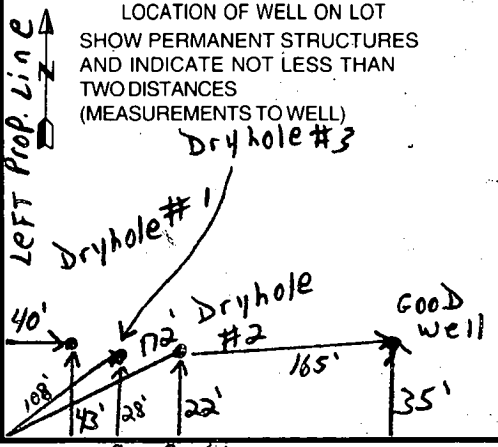 LOCATION OF WELL ON LOT
SHOW PERMANENT STRUCTURES
AND INDICATE NOT LESS THAN
TWO DISTANCES
(MEASUREMENTS TO WELL)
N
LEFT Prop. Line
Dryhole #3
Dryhole #1
Dryhole
#2
GOOD
Well
40'
172'
165'
108'
43'
28'
22'
35'